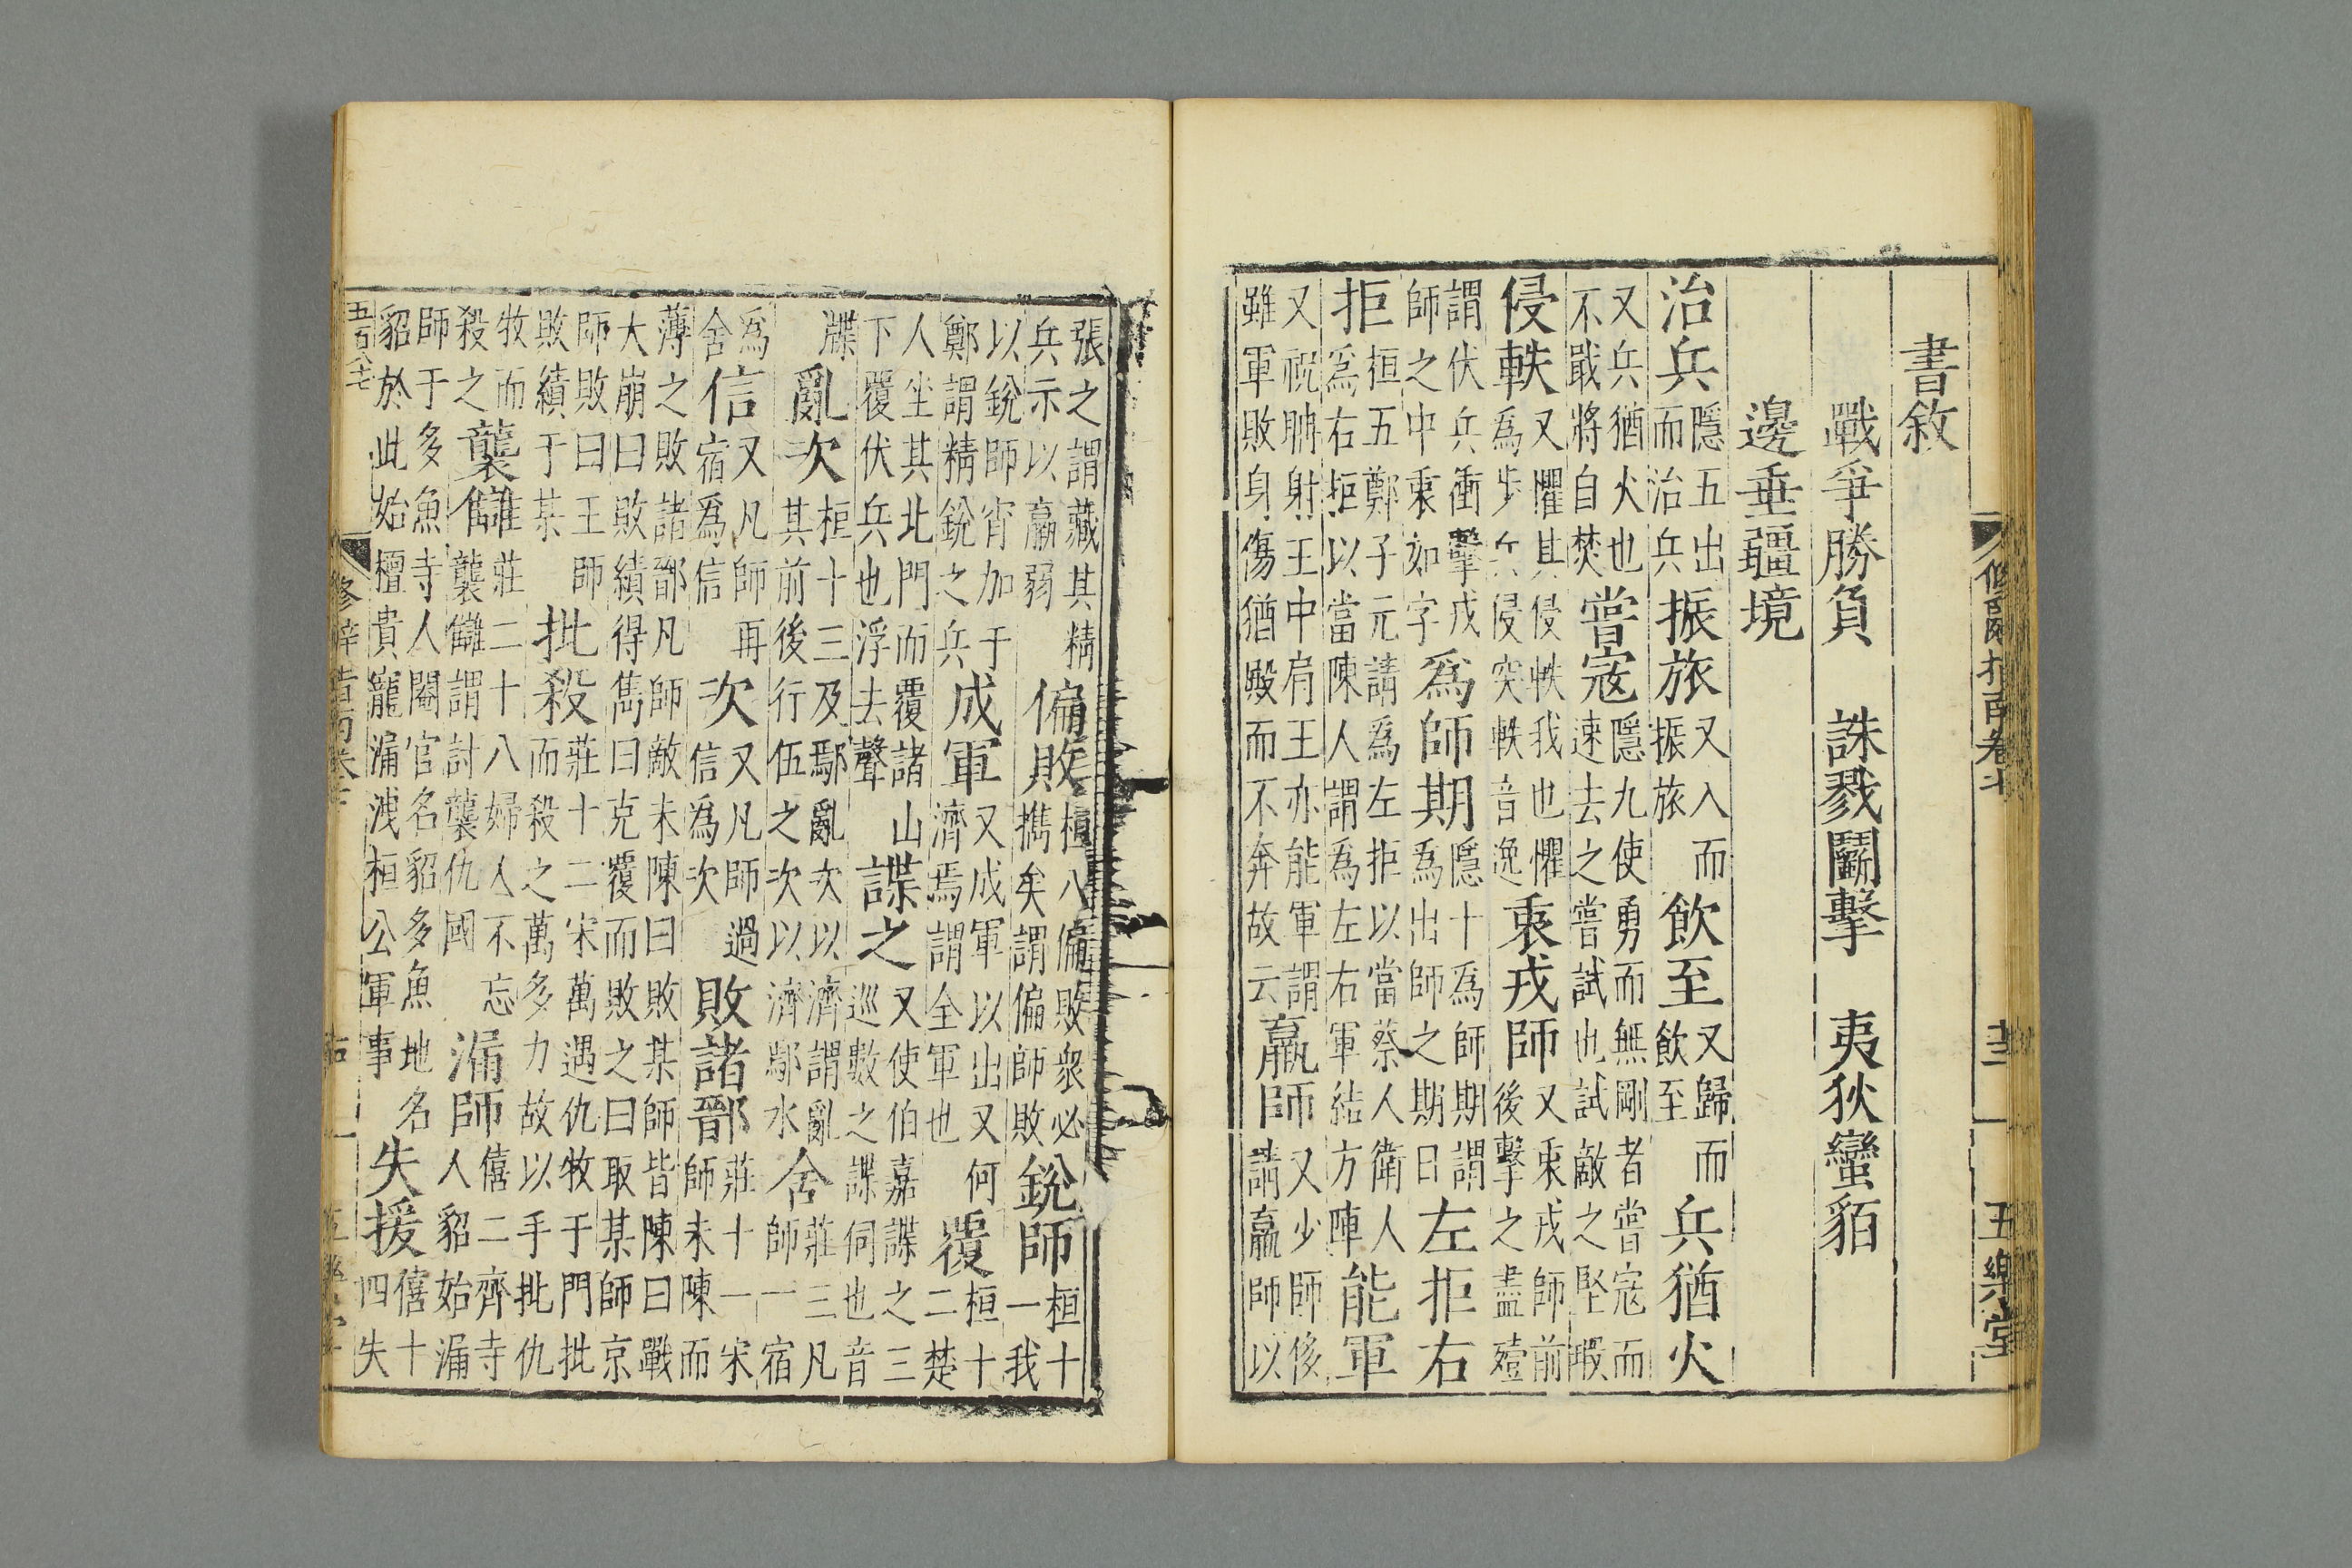 書敘
戰爭勝負　誅戮鬭擊　夷狄蠻貊
邊垂疆境
治兵隱五出而治兵振旅又入而振旅飲至又歸而飲至兵猶火
又兵猶火也不戢將自焚嘗寇隱九使勇而無剛者嘗寇而速去之嘗試也試敵之堅瑕
侵軼又懼其侵軼我也懼為步兵侵突軼音逸衷戎師又衷戎師前後擊之盡殪
謂伏兵衝擊戎師之中衷如字為師期隱十為師期謂為出師之期日左拒右
拒桓五鄭子元請為左拒以當蔡人衛人為右拒以當陳人謂為左右軍結方陣能軍
又祝聃射王中肩王亦能軍謂雖軍敗身傷猶殿而不奔故云羸師又少師侈請羸師以
張之謂藏其精兵示以羸弱偏敗桓八偏敗衆必攜矣謂偏師敗銳師桓十一我
以銳師宵加于鄭謂精銳之兵成軍又成軍以出又何濟焉謂全軍也覆桓十二楚
人坐其北門而覆諸山下覆伏兵也浮去聲諜之又使伯嘉諜之三巡數之諜伺也音
牒亂次桓十三及鄢亂次以濟謂亂其前後行伍之次以濟鄢水舍莊三凡師一宿
為舍信又凡師再宿為信次又凡師過信為次敗諸鄑莊十一宋師未陳而
薄之敗諸鄑凡師敵未陳曰敗某師皆陳曰戰大崩曰敗績得雋曰克覆而敗之曰取某師京
師敗曰王師敗績于某批殺莊十二宋萬遇仇牧于門批而殺之萬多力故以手批仇
牧而殺之襲讎莊二十八婦人不忘襲讎謂討襲仇國漏師僖二齊寺人貂始漏
師于多魚寺人閹官名貂多魚地名貂於此始擅貴寵漏洩桓公軍事失援僖十四失
五百八七
修辭指南卷七
十三
五樂堂